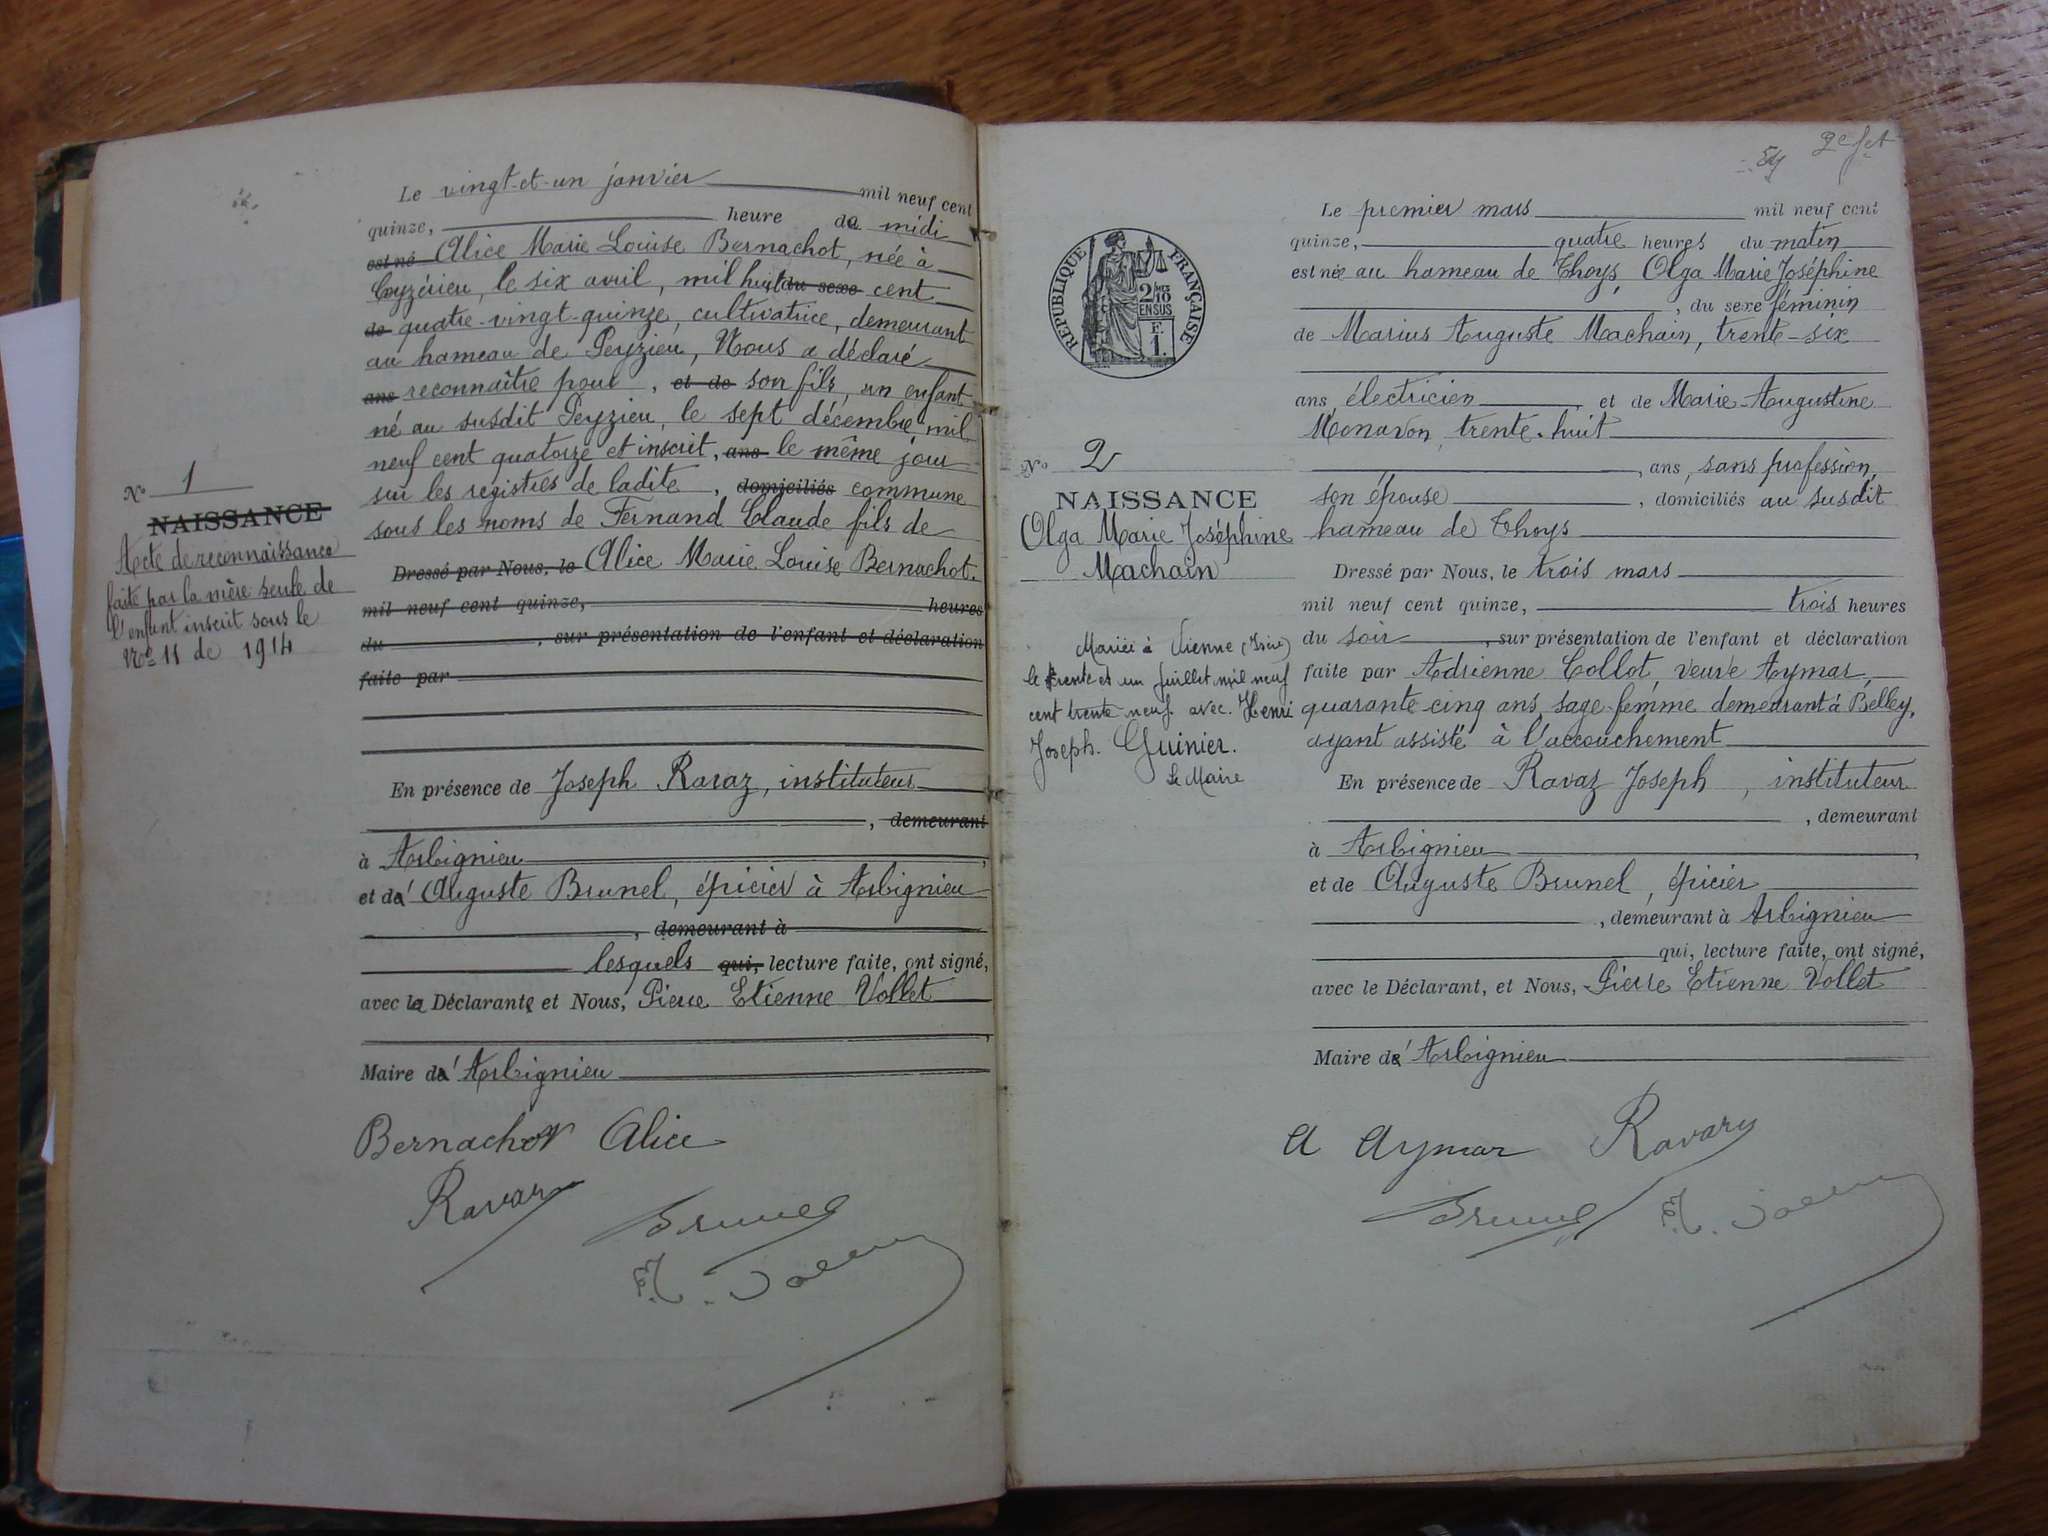 Le vingt-et-un janvier mil neuf cent
quinze, heure de midi
est né Alice Marie Louise Bernachot, née à
Ceyzérieu, le six avril, mil huit du sexe cent
de quatre-vingt-quinze, cultivatrice, demeurant
au hameau de Peyzieu, Nous a déclaré
ans reconnaître pour, et de son fils, un enfant
né au susdit Peyzieu, le sept décembre mil
neuf cent quatorze et inscrit, ans le même jour
sur les registres de ladite, domiciliés commune
sous les noms de Fernand Claude fils de
Dressé par Nous, le Alice Marie Louise Bernachot.
mil neuf cent quinze, heures
du , sur présentation de l'enfant et déclaration
faite par
En présence de Joseph Ravaz, instituteur
, demeurant
à Arbignieu
et d' Auguste Brunel, épicier à Arbignieu
, demeurant à
lesquels qui, lecture faite, ont signé,
avec la Déclarante et Nous, Pierre Etienne Vollet
Maire d' Arbignieu
Bernachot Alice
Ravaz
Brunel
No 1
NAISSANCE
Acte de reconnaissance
faite par la mère seule de
l'enfant inscrit sous le
No 11 de 1914
2e fet
RÉPUBLIQUE FRANÇAISE
2/10
EN SUS
F.
1.
No 2
NAISSANCE
Olga Marie Joséphine
Machain
Mariée à Vienne (Isère)
le trente et un juillet mil neuf
cent trente neuf avec Henri
Joseph Guinier.
Le Maire
Le premier mars mil neuf cent
quinze, quatre heures du matin
est née au hameau de Thoys, Olga Marie Joséphine
, du sexe féminin
de Marius Auguste Machain, trente-six
ans, électricien, et de Marie-Augustine
Monavon, trente-huit
, ans, sans profession,
son épouse, domiciliés au susdit
hameau de Thoys
Dressé par Nous, le trois mars
mil neuf cent quinze, trois heures
du soir, sur présentation de l'enfant et déclaration
faite par Adrienne Collot, veuve Aymar,
quarante-cinq ans, sage-femme demeurant à Belley,
ayant assisté à l'accouchement
En présence de Ravaz Joseph, instituteur
, demeurant
à Arbignieu
et de Auguste Brunel, épicier
, demeurant à Arbignieu
qui, lecture faite, ont signé,
avec le Déclarant, et Nous, Pierre Etienne Vollet
Maire d' Arbignieu
A Aymar Ravaz
Brunel